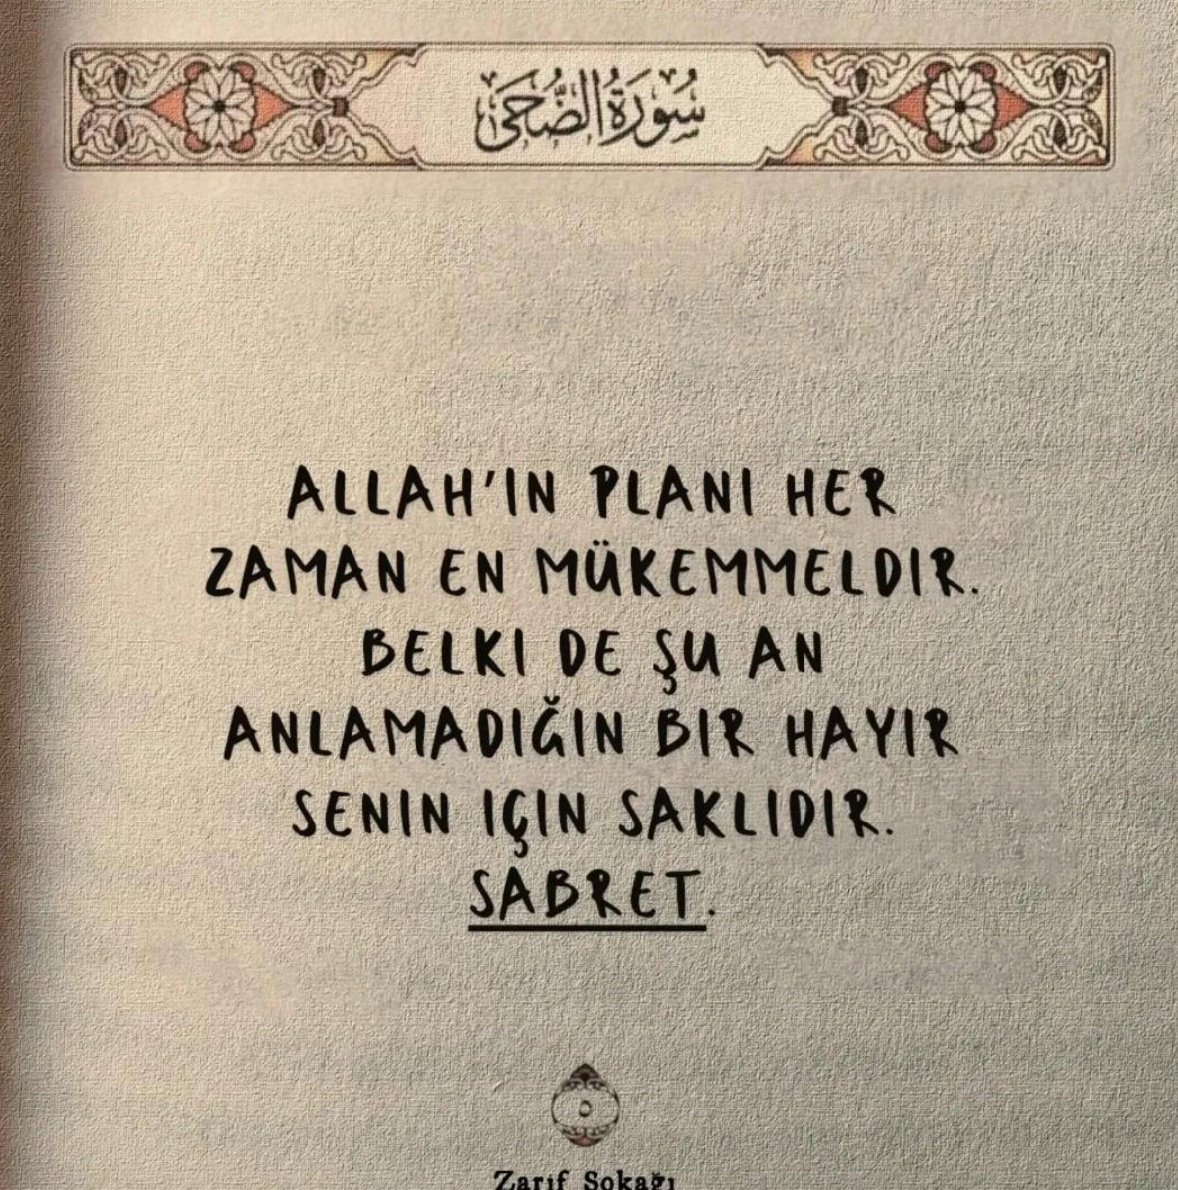 سُورَةُ الضُّحَى
ALLAH'IN PLANI HER
ZAMAN EN MÜKEMMELDIR.
BELKI DE ŞU AN
ANLAMADIĞIN BIR HAYIR
SENIN IÇIN SAKLIDIR.
SABRET.
٥
Zarif Sokağı